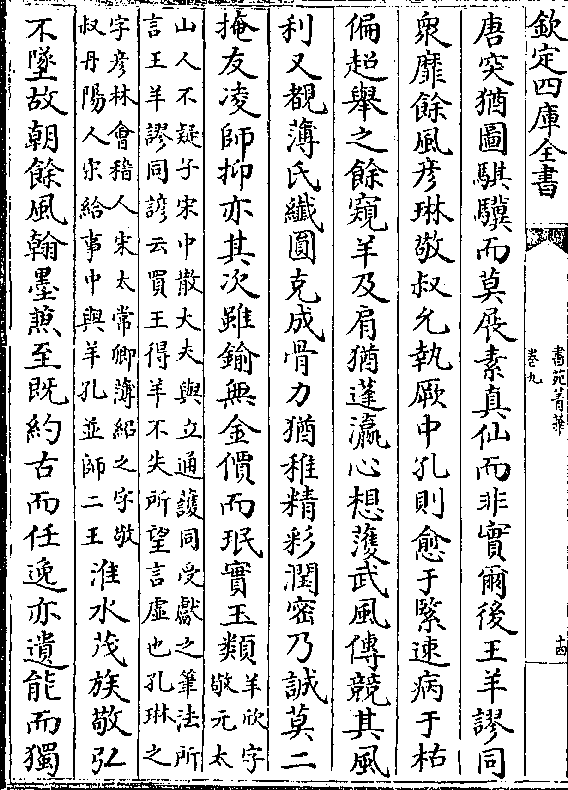 欽定四庫全書
書苑菁華
卷九
十四
唐突猶圖騏驥而莫展素真仙而非實爾後王羊謬同
衆靡餘風彦琳敬叔允執厥中孔則愈于緊速病于枯
偏超舉之餘窺羊及肩猶蓬瀛心想䕶武風傳競其風
利又覩薄氏纎圓克成骨力猶稚精彩潤密乃誠莫二
掩友凌師抑亦其次雖鍮無金價而珉實玉類羊欣字敬元太
山人不疑子宋中散大夫與立通䕶同受獻之筆法所
言王羊謬同諺云買王得羊不失所望言虚也孔琳之
字彦林會稽人宋太常卿薄紹之字敬
叔丹陽人宋給事中與羊孔並師二王淮水茂族敬弘
不墜故朝餘風翰墨煎至既約古而任逸亦遺能而獨